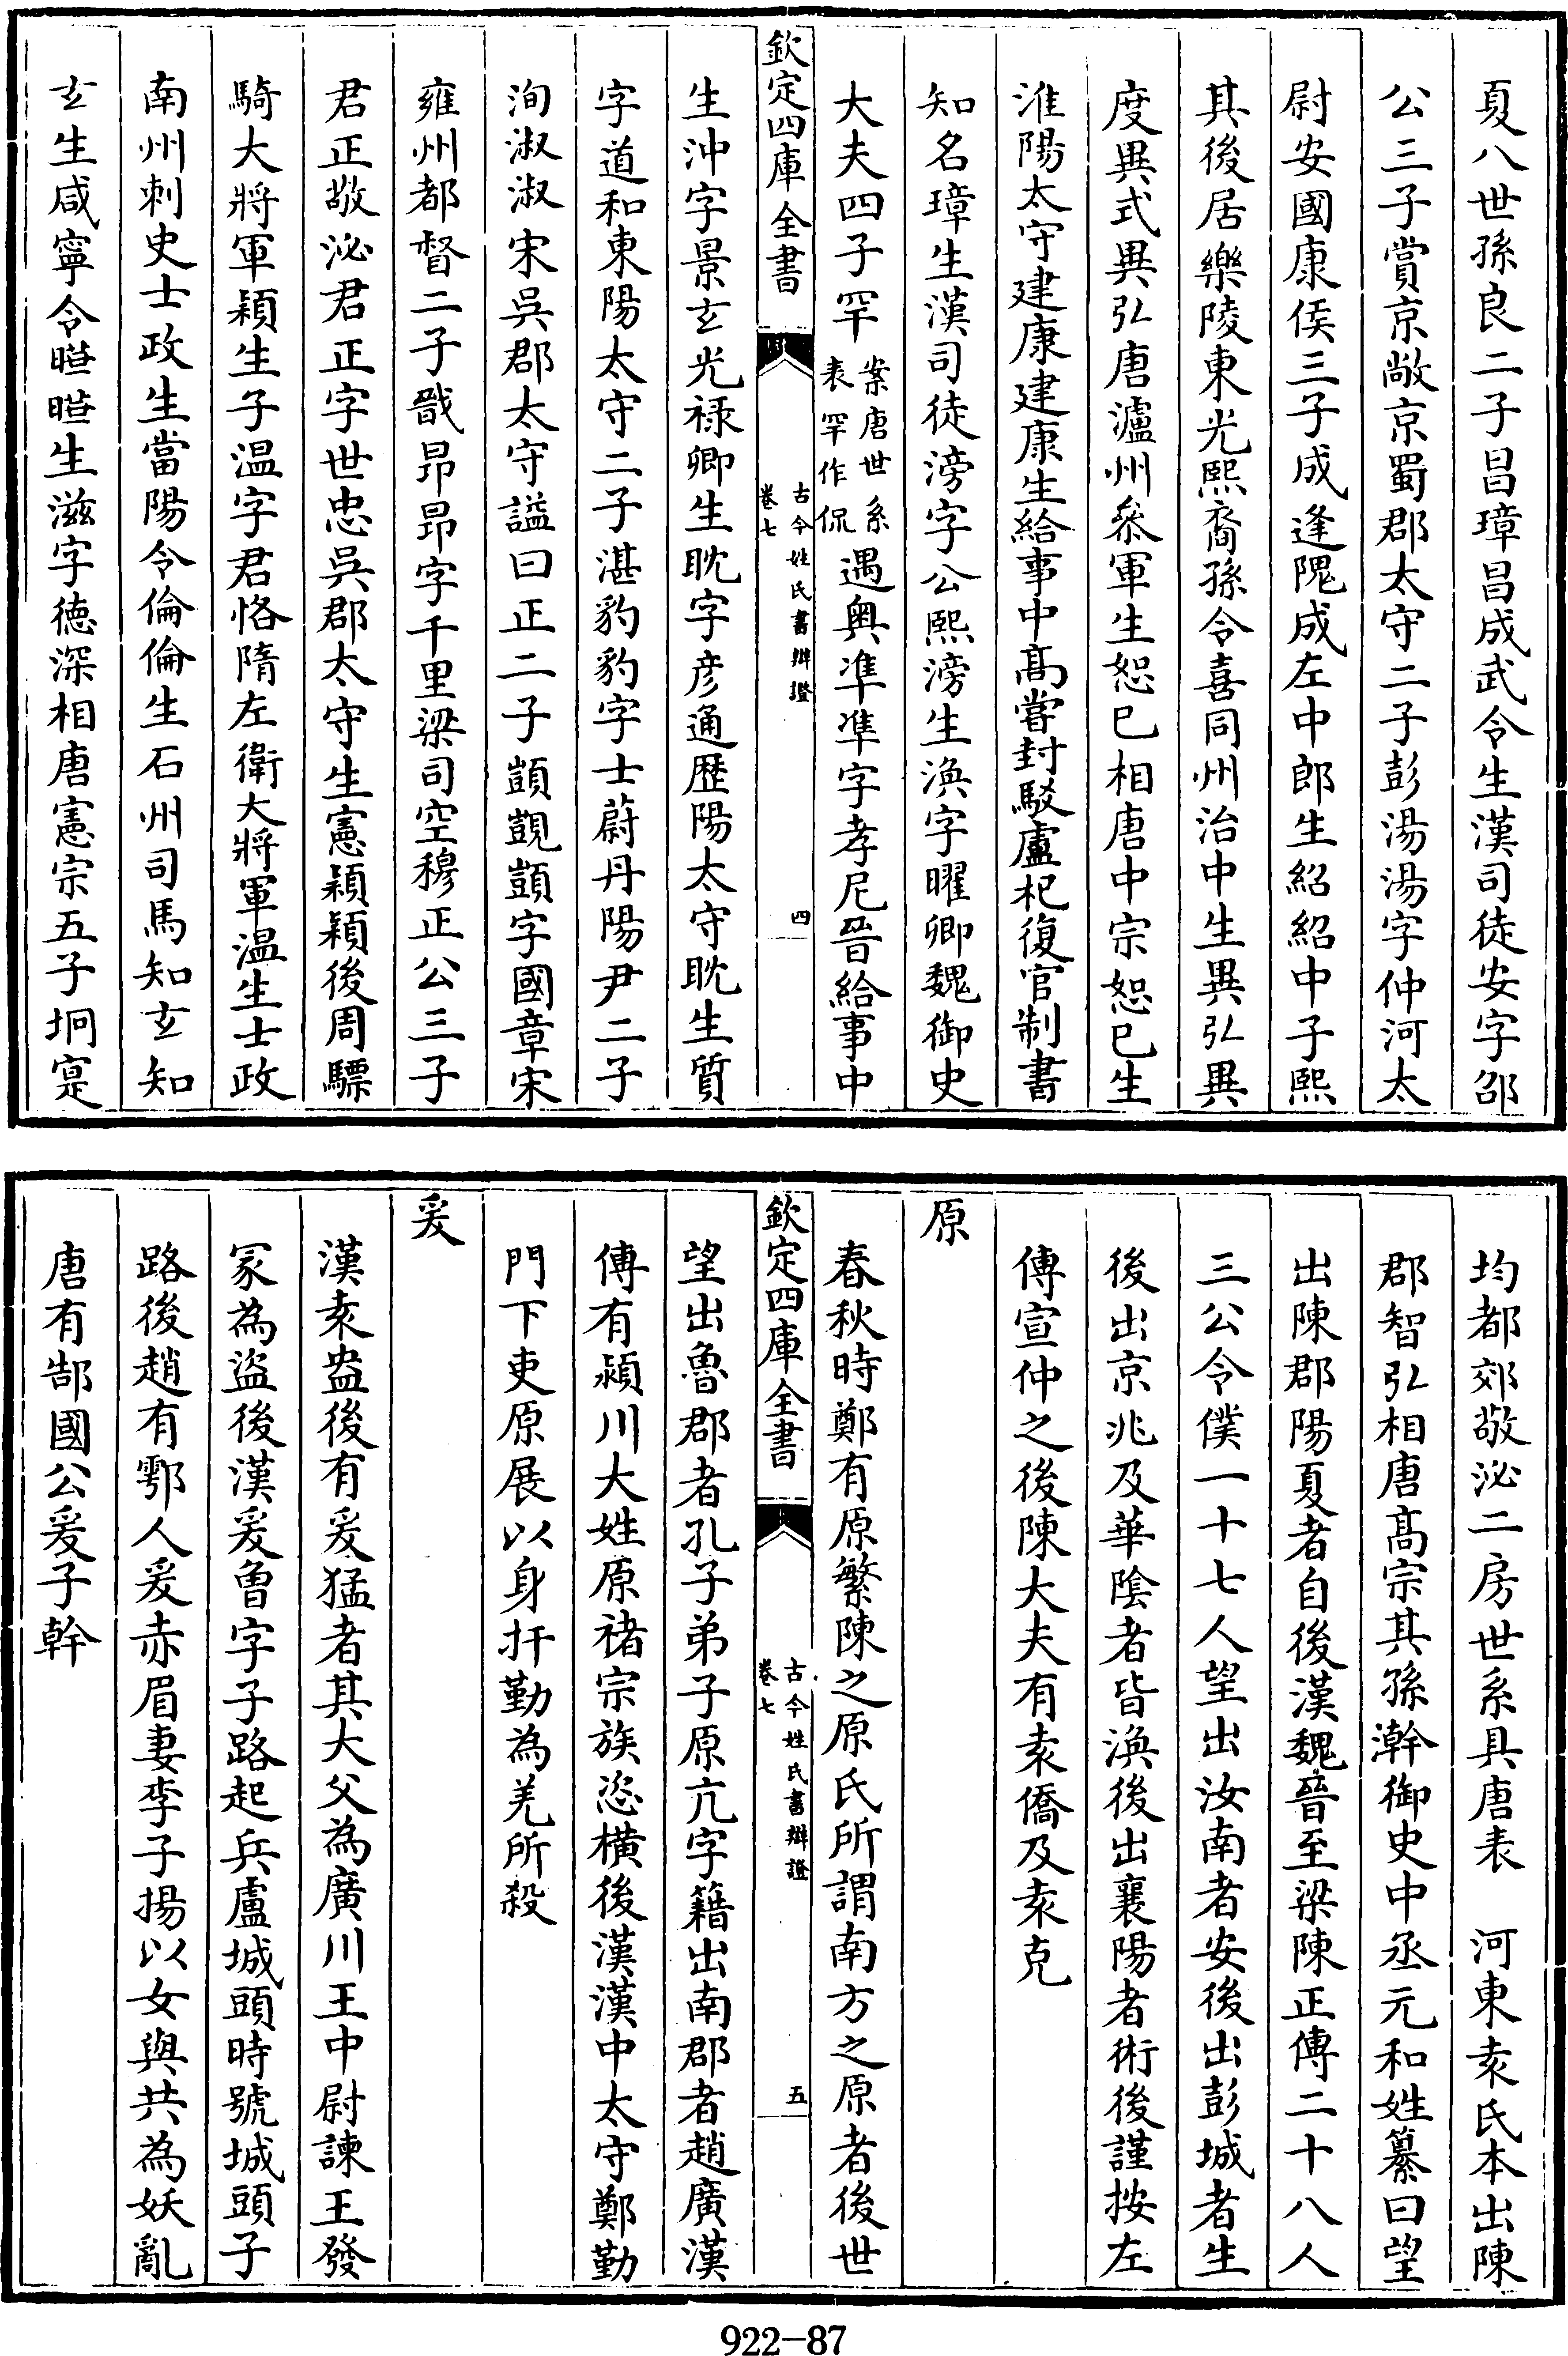 夏八世孫良二子昌璋昌成武令生漢司徒安字邵
公三子賞京敞京蜀郡太守二子彭湯湯字仲河太
尉安國康侯三子成逢隗成左中郎生紹紹中子熙
其後居樂陵東光熙裔孫令喜同州治中生異弘異
度異式異弘唐瀘州叅軍生恕已相唐中宗恕已生
淮陽太守建康建康生給事中髙嘗封駁盧杞復官制書
知名璋生漢司徒滂字公熙滂生渙字曜卿魏御史
大夫四子罕案唐世系表罕作侃遇奥凖凖字孝尼晉給事中
欽定四庫全書
古今姓氏書辯證
卷七
四
生沖字景玄光祿卿生耽字彦通歴陽太守耽生質
字道和東陽太守二子湛豹豹字士蔚丹陽尹二子
洵淑淑宋吳郡太守諡曰正二子顗覬顗字國章宋
雍州都督二子戩昻昻字千里梁司空穆正公三子
君正敬泌君正字世忠吳郡太守生憲穎穎後周驃
騎大將軍穎生子温字君恪隋左衛大將軍温生士政
南州刺史士政生當陽令倫倫生石州司馬知玄知
玄生咸寧令曄曄生滋字德深相唐憲宗五子垌寔
均都郊敬泌二房世系具唐表　河東袁氏本出陳
郡智弘相唐髙宗其孫澣御史中丞元和姓纂曰望
出陳郡陽夏者自後漢魏晉至梁陳正傳二十八人
三公令僕一十七人望出汝南者安後出彭城者生
後出京兆及華陰者皆渙後出襄陽者術後謹按左
傳宣仲之後陳大夫有袁僑及袁克
原
春秋時鄭有原繁陳之原氏所謂南方之原者後世
欽定四庫全書
古今姓氏書辯證
卷七
五
望出魯郡者孔子弟子原亢字籍出南郡者趙廣漢
傳有潁川大姓原褚宗族恣橫後漢漢中太守鄭勤
門下吏原展以身扞勤為羌所殺
爰
漢袁盎後有爰猛者其大父為廣川王中尉諫王發
冡為盜後漢爰曾字子路起兵盧城頭時號城頭子
路後趙有鄠人爰赤眉妻李子揚以女與共為妖亂
唐有郜國公爰子幹
922-87